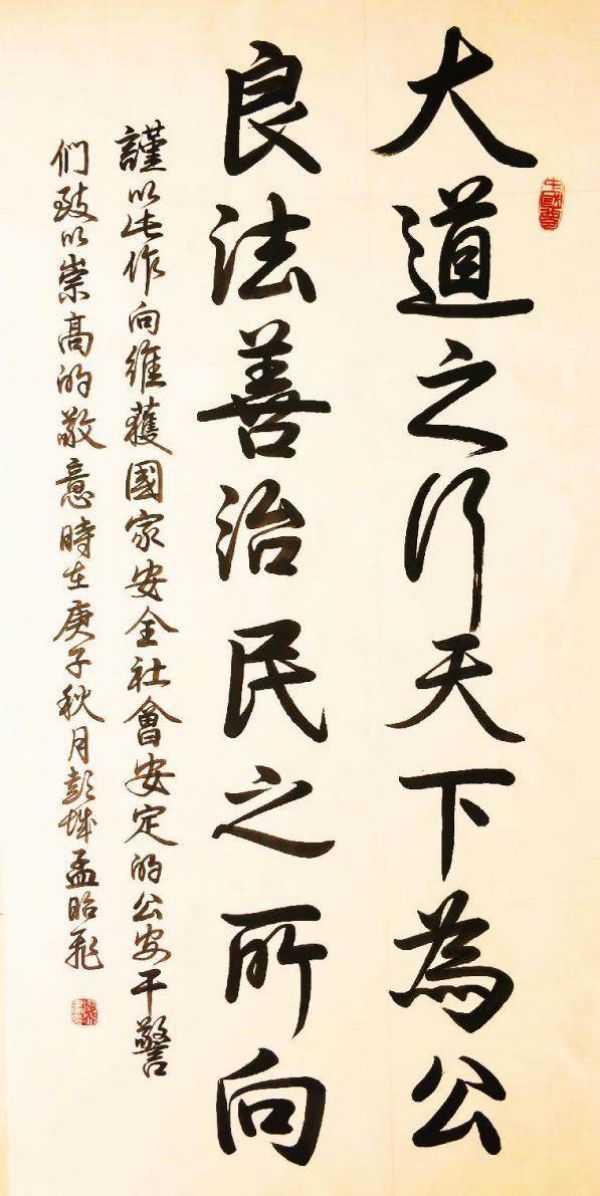 大道之行天下為公
良法善治民之所向
謹以此作向維護國家安全社會安定的公安干警
们致以崇高的敬意時在庚子秋月彭城孟昭飛